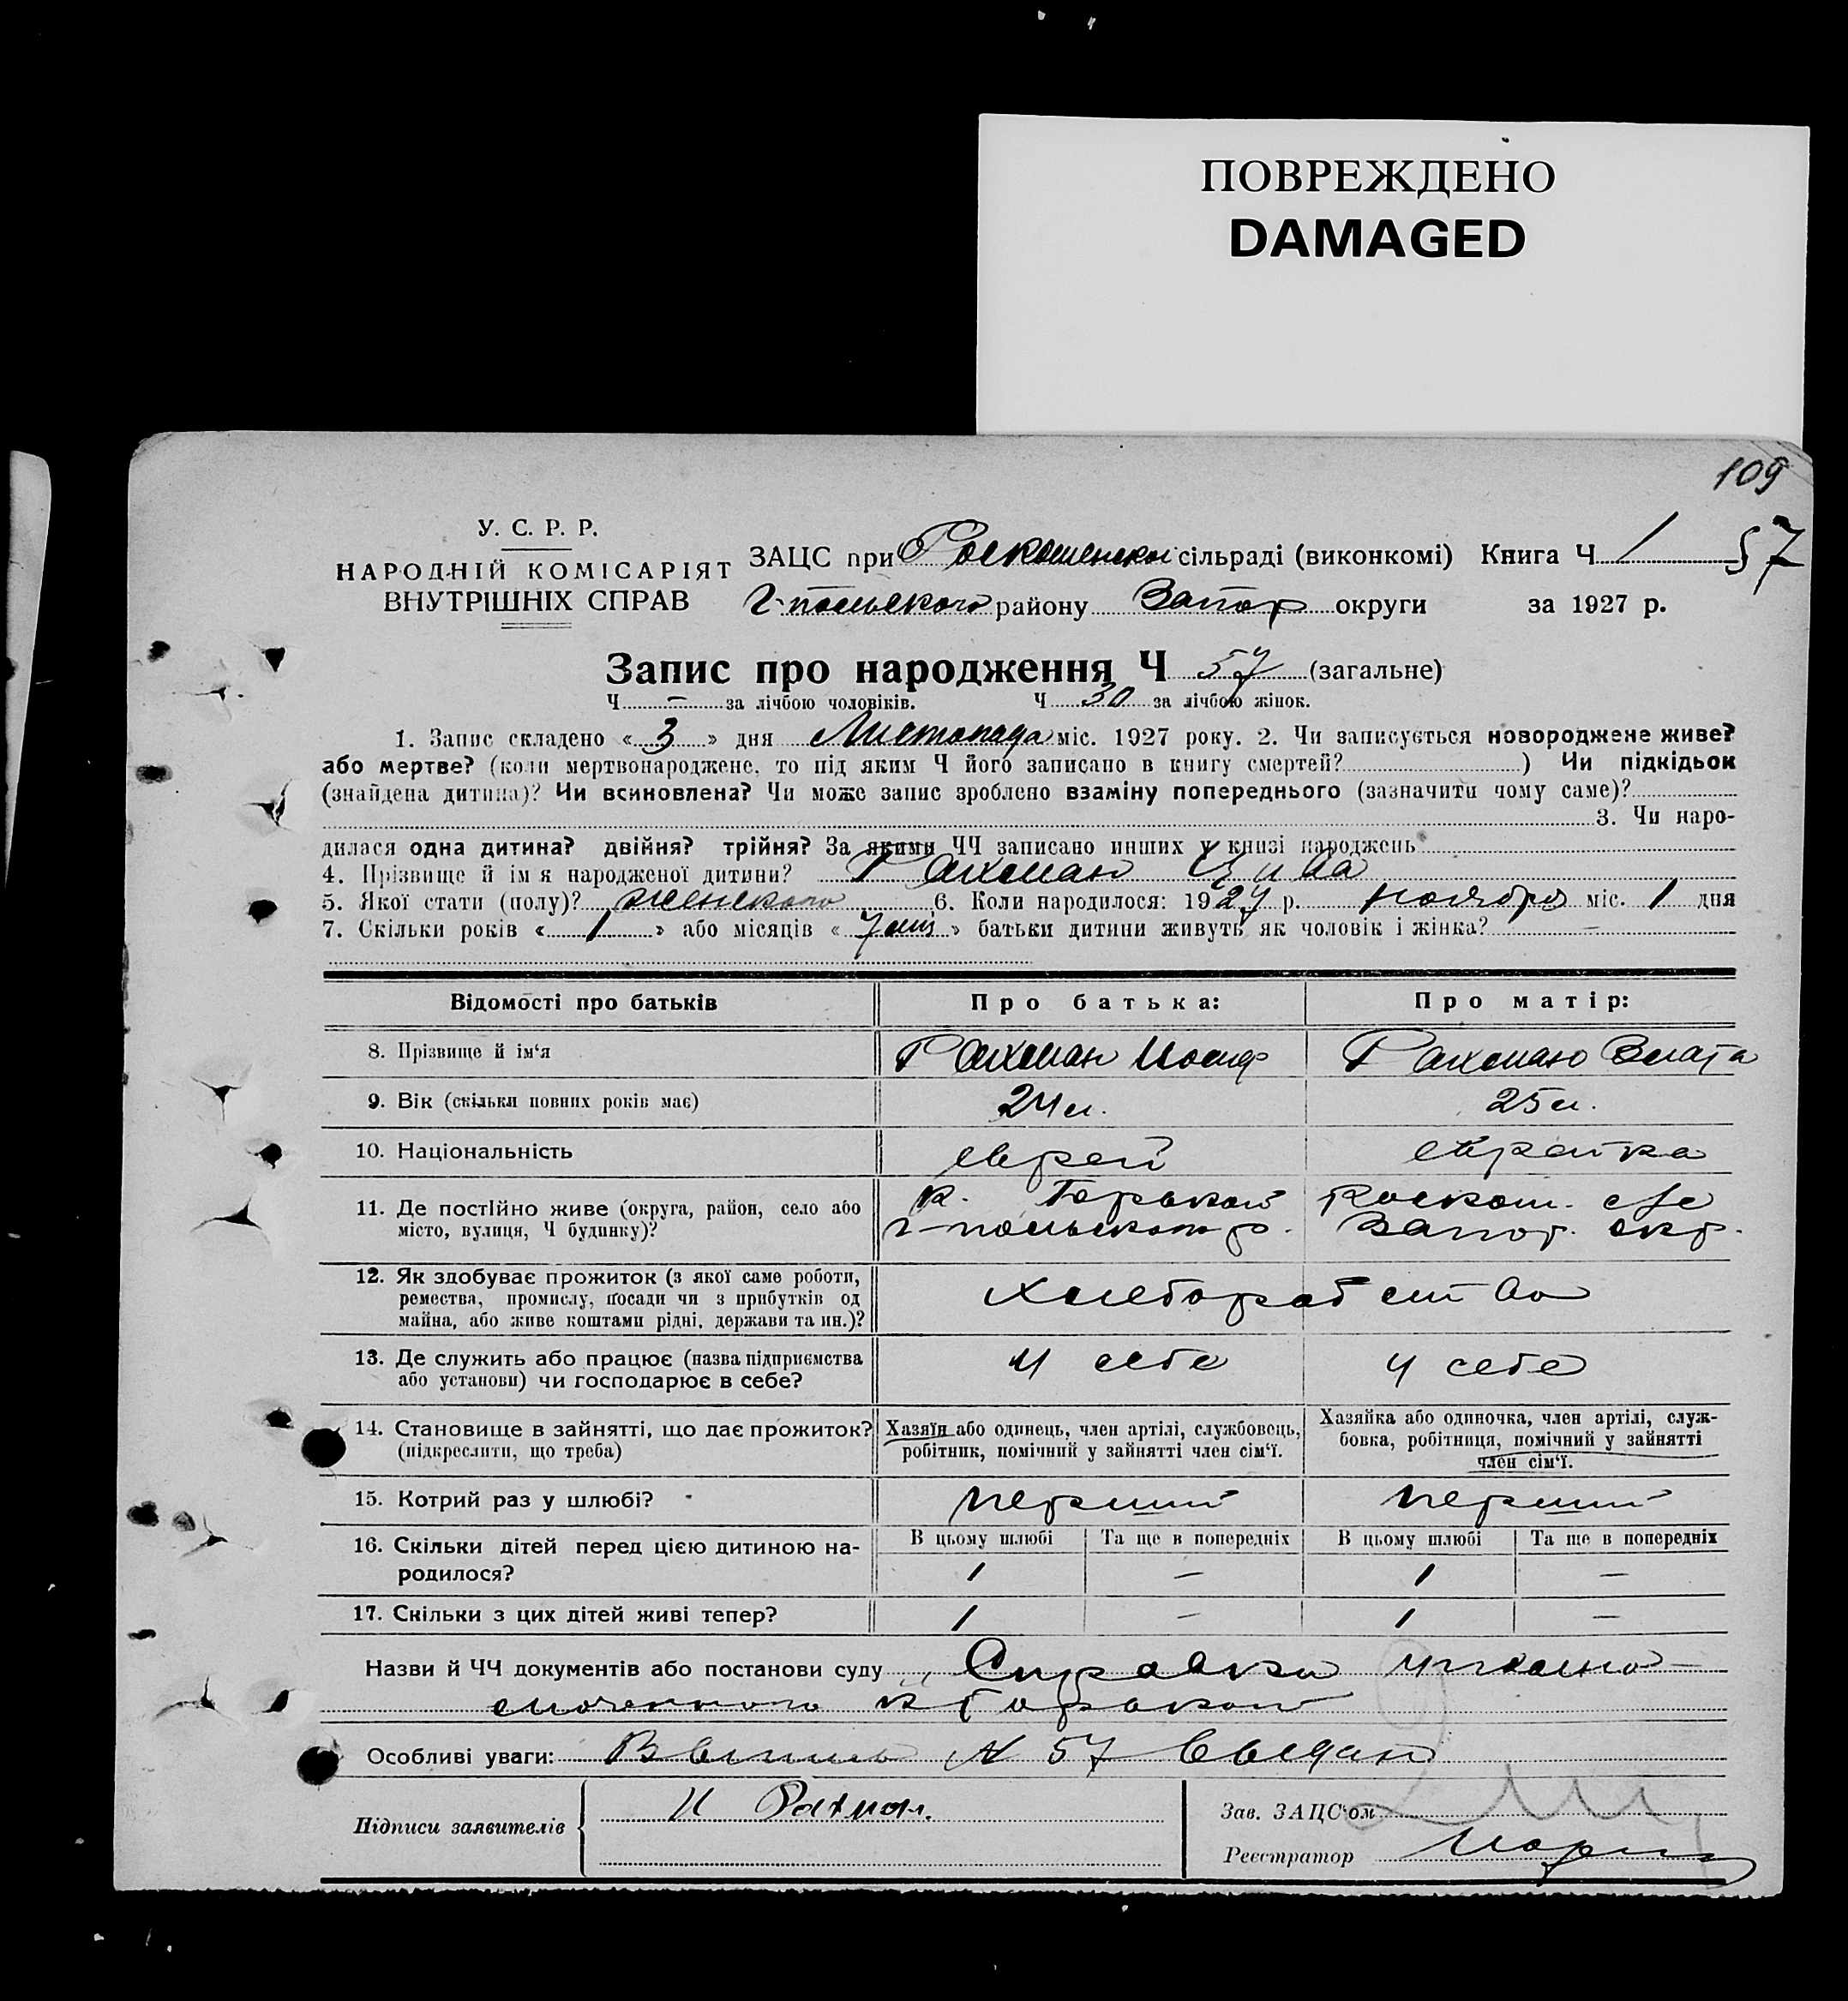 ПОВРЕЖДЕНО
DAMAGED
109
У. С. Р. Р.
НАРОДНІЙ КОМІСАРІЯТ
ВНУТРІШНІХ СПРАВ
ЗАЦС при Роскошенской сільраді (виконкомі) Книга Ч 1 57
Г-польского району Запор округи за 1927 р.
Запис про народження Ч 57 (загальне)
Ч – за лічбою чоловіків. Ч 30 за лічбою жінок.
1. Запис складено « 3 » дня Листопада міс. 1927 року. 2. Чи записується новороджене живе?
або мертве? (коли мертвонароджене, то під яким Ч його записано в книгу смертей? ) Чи підкідьок
(знайдена дитина)? Чи всиновлена? Чи може запис зроблено взаміну попереднього (зазначити чому саме)?
3. Чи наро-
дилася одна дитина? двійня? трійня? За якими ЧЧ записано инших у книзі народжень
4. Прізвище й ім'я народженої дитини? Рахман Цива
5. Якої стати (полу)? женского 6. Коли народилося: 1927 р. ноября міс. 1 дня
7. Скільки років « 1 » або місяців « 7 міс » батьки дитини живуть як чоловік і жінка? –
Відомості про батьків Про батька: Про матір:
8. Прізвище й ім'я Рахман Иосиф Рахман Злата
9. Вік (скільки повних років має) 24 л. 25 л.
10. Національність еврей еврейка
11. Де постійно живе (округа, район, село або к. Горькой Роскош. с/с
місто, вулиця, Ч будинку)? г-польского р. Запор. окр.
12. Як здобуває прожиток (з якої саме роботи,
ремества, промислу, посади чи з прибутків од
майна, або живе коштами рідні, держави та ин.)? Хлеборобство
13. Де служить або працює (назва підприємства у себе у себе
або установи) чи господарює в себе?
14. Становище в зайнятті, що дає прожиток? Хазяїн або одинець, член артілі, службовець, Хазяйка або одиночка, член артілі, служ-
(підкреслити, що треба) робітник, помічний у зайнятті член сім'ї. бовка, робітниця, помічний у зайнятті
член сім'ї.
15. Котрий раз у шлюбі? перший перший
16. Скільки дітей перед цією дитиною на- В цьому шлюбі Та ще в попередніх В цьому шлюбі Та ще в попередніх
родилося? 1 – 1 –
17. Скільки з цих дітей живі тепер? 1 – 1 –
Назви й ЧЧ документів або постанови суду Справка уполно-
моченного к Горькой
Особливі уваги: N 57 выдан
Підписи заявителів И Рахман.
Зав. ЗАЦС'ом
Реєстратор